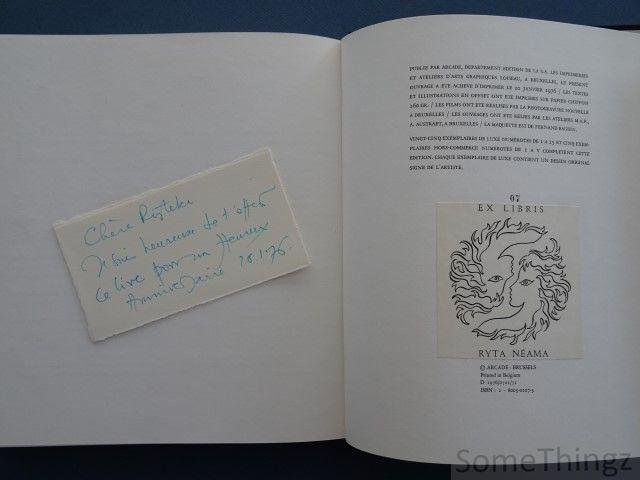 Chère
Je suis heureuse de t'offrir
ce livre pour un Heureux
Anniversaire 28.1.76
PUBLIE PAR ARCADE, DEPARTEMENT EDITION DE LA S.A. LES IMPRIMERIES
ET ATELIERS D'ARTS GRAPHIQUES LOISEAU, A BRUXELLES, LE PRESENT
OUVRAGE A ETE ACHEVE D'IMPRIMER LE 20 JANVIER 1976 / LES TEXTES
ET ILLUSTRATIONS EN OFFSET ONT ETE IMPRIMES SUR PAPIER CHIFFON
160 GR. / LES FILMS ONT ETE REALISES PAR LA PHOTOGRAVURE NOUVELLE
A BRUXELLES / LES OUVRAGES ONT ETE RELIES PAR LES ATELIERS
A BRUXELLES / LA MAQUETTE EST DE FERNAND
VINGT-CINQ EXEMPLAIRES DE LUXE NUMEROTES DE 1 A 25 ET CINQ EXEM-
PLAIRES HORS-COMMERCE NUMEROTES DE I A V COMPLETENT CETTE
EDITION. CHAQUE EXEMPLAIRE DE LUXE CONTIENT UN DESSIN ORIGINAL
SIGNE DE L'ARTISTE.
07
EX LIBRIS
RYTA NÉAMA
© ARCADE - BRUSSELS
Printed in Belgium
ISBN : 2 - 8005-0107-5
SomeThingz